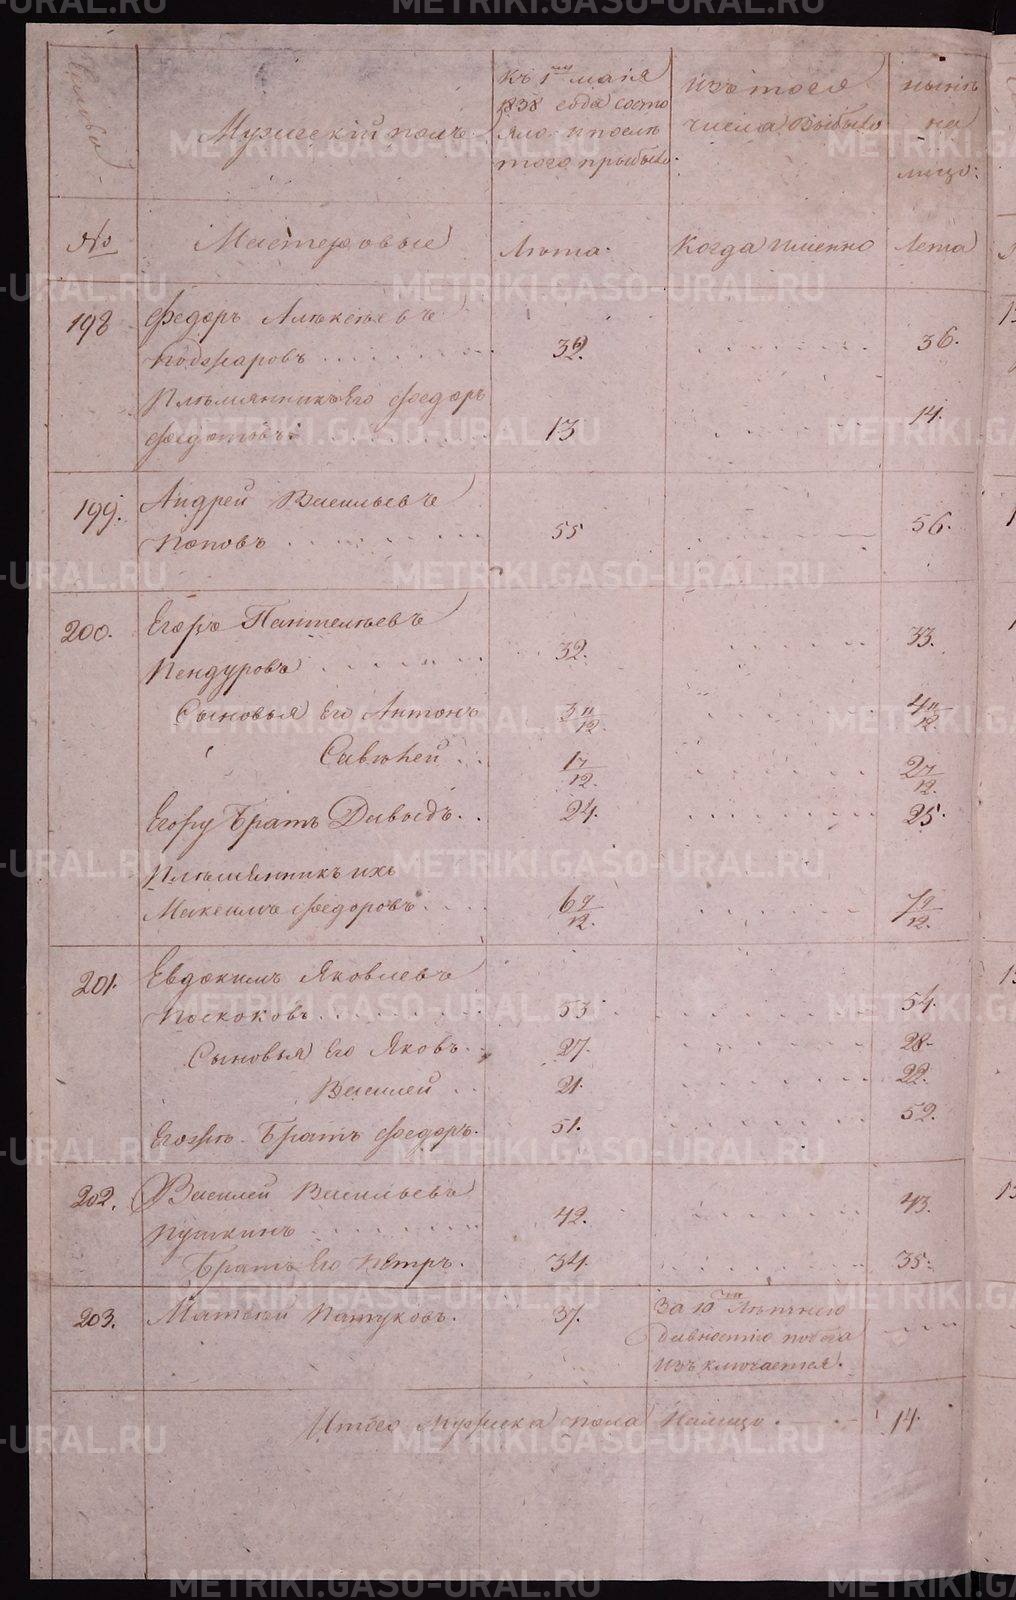 Семьи
Мужеский полъ.
Къ 1му маiя
1838 года состо
яло и послѣ
того прибыло.
изъ того
числа выбыло
нынѣ
на
лицо:
№
Мастеровые
Лѣта.
Когда именно
Лета
198
Федоръ Алексѣевъ
Поджаровъ
36.
Племянникъ Его Федоръ
Федотовъ
13
14.
199.
Андрей Васильевъ
Поповъ
55
56.
200.
Егоръ Пантелѣевъ
Пендуровъ
32.
33.
Сыновья Его Антонъ
3 11/12.
4 11/12.
Савѣтей
1 7/12.
2 7/12.
Егору Братъ Давыдъ.
24.
25.
Племянникъ ихъ
Максимъ Федоровъ
6 9/12.
7 9/12.
201.
Евдокимъ Яковлевъ
Поскоковъ
53
54.
Сыновья Его Яковъ.
27.
28.
Василей
21.
22.
Братъ Федоръ.
51.
52.
202.
Василей Васильевъ
Пушкинъ
42.
43.
Братъ Его Петръ.
34.
35.
203.
Матвей Патуковъ.
37.
За 10ти Лѣтнею
давностiю побега
изъключается.
Итого мужеска пола Налицо
14.
METRIKI.GASO-URAL.RU